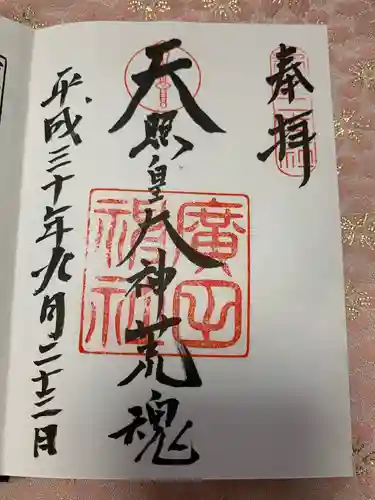 奉拝
天照皇大神荒魂
廣田神社
平成三十年九月二十三日